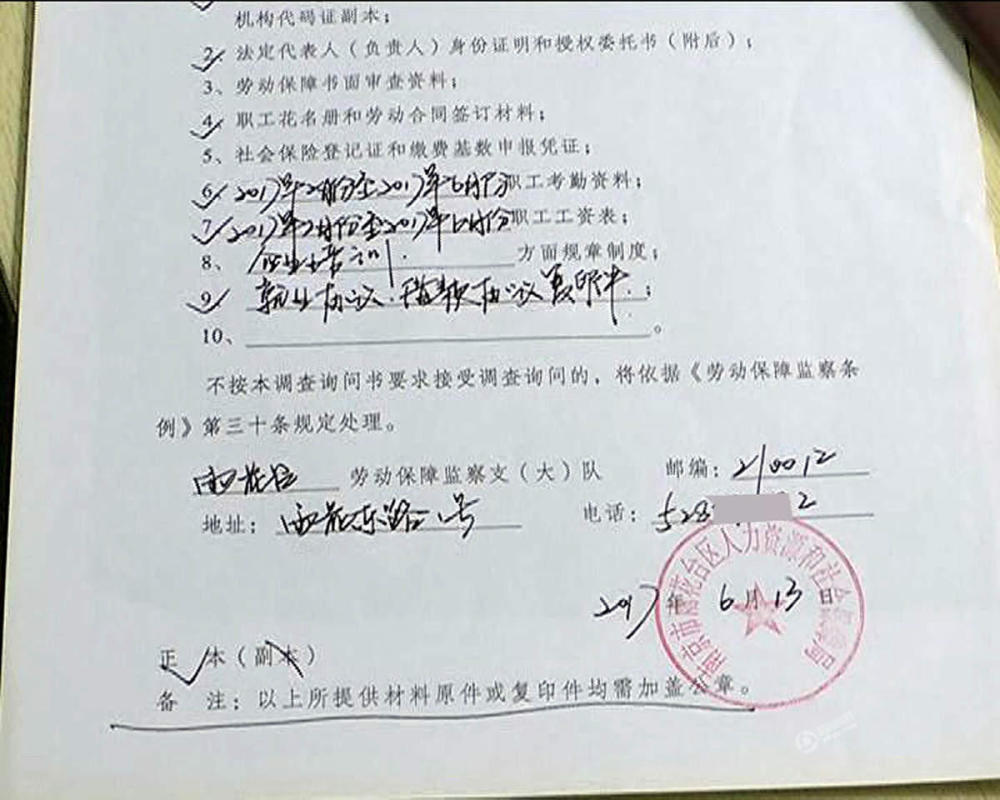 机构代码证副本；
2、法定代表人（负责人）身份证明和授权委托书（附后）；
3、劳动保障书面审查资料；
4、职工花名册和劳动合同签订材料；
5、社会保险登记证和缴费基数申报凭证；
6、2017年2月份至2017年6月份职工考勤资料；
7、2017年2月份至2017年6月份职工工资表；
8、企业培训 方面规章制度；
9、就业协议、 协议复印件；
10、。
不按本调查询问书要求接受调查询问的，将依据《劳动保障监察条
例》第三十条规定处理。
雨花台 劳动保障监察支（大）队 邮编：210012
地址：雨花东路 号 电话：528 2
南京市雨花台区人力资源和社会保障局
2017年 6月13日
正 本（副本）
备 注：以上所提供材料原件或复印件均需加盖公章。